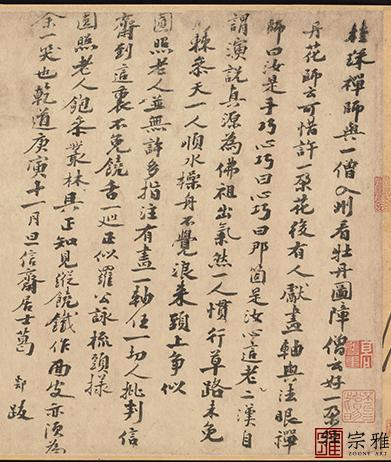 桂琛禪師與一僧入州看牡丹圖障僧云好一朶牡
丹花師云可惜許一朶花後有人獻畫軸與法眼禪
師曰汝是手巧心巧曰心巧曰那箇是汝心這老二漢自
謂演說真源為佛祖出氣然一人慣行草路未免
棘參天一人順水操舟不覺浪來頭上爭似
圓照老人並無許多指注有畫一軸任一切人批判信
齋到這裏不免饒舌正似羅公詠梳頭樣
圓照老人飽參叢林具正知見縱饒鐵作面皮亦須為
余一笑也乾道庚寅十一月旦信齋居士葛
郯跋
宗雅